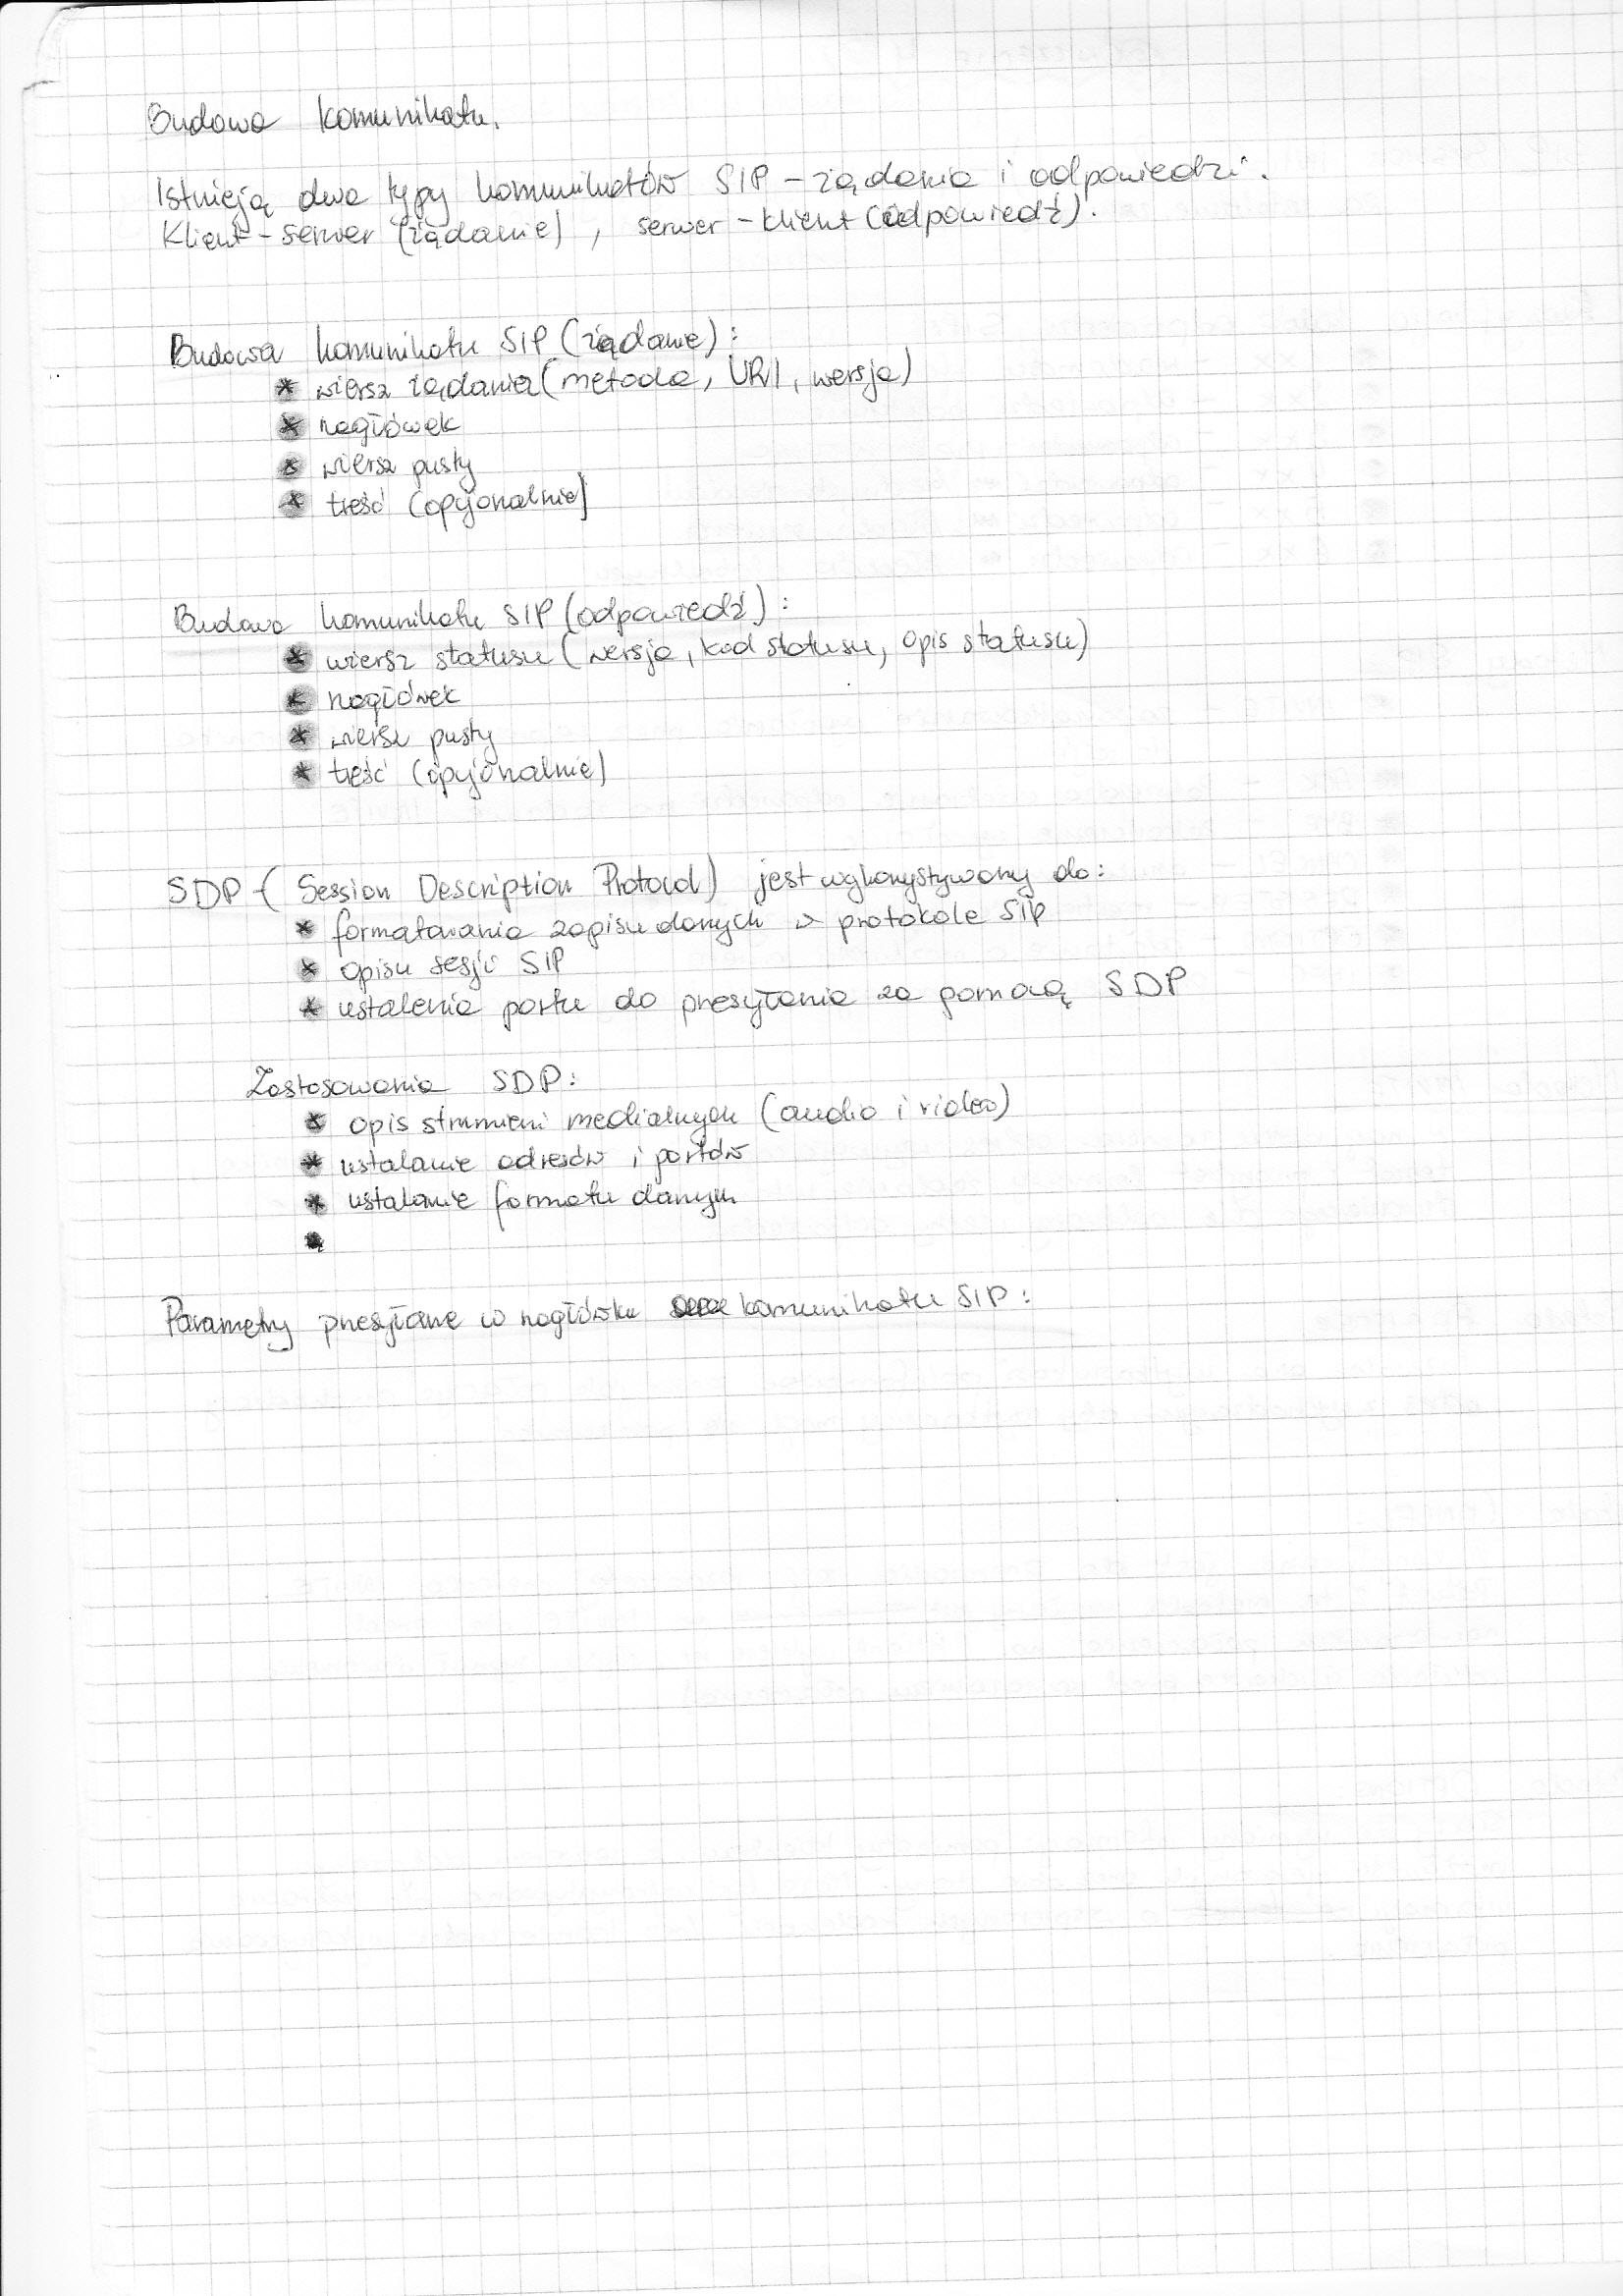 Budowa komunikatu.
Istnieją dwa typy komunikatów SIP - żądania i odpowiedzi.
Klient - serwer (żądanie), serwer - klient (odpowiedź).
Budowa komunikatu SIP (żądanie):
* wiersz żądania (metoda, URI, wersja)
* nagłówek
* wiersz pusty
* treść (opcjonalnie)
Budowa komunikatu SIP (odpowiedź):
* wiersz statusu (wersja, kod statusu, opis statusu)
* nagłówek
* wiersz pusty
* treść (opcjonalnie)
SDP - (Session Description Protocol) jest wykorzystywany do:
* formatowania zapisu danych w protokole SIP
* opisu sesji SIP
* ustalenia portu do przesyłania za pomocą SDP
Zastosowania SDP:
* opis strumieni medialnych (audio i video)
* ustalanie adresów i portów
* ustalanie formatu danych
*
Parametry przesyłane w nagłówku komunikatu SIP: